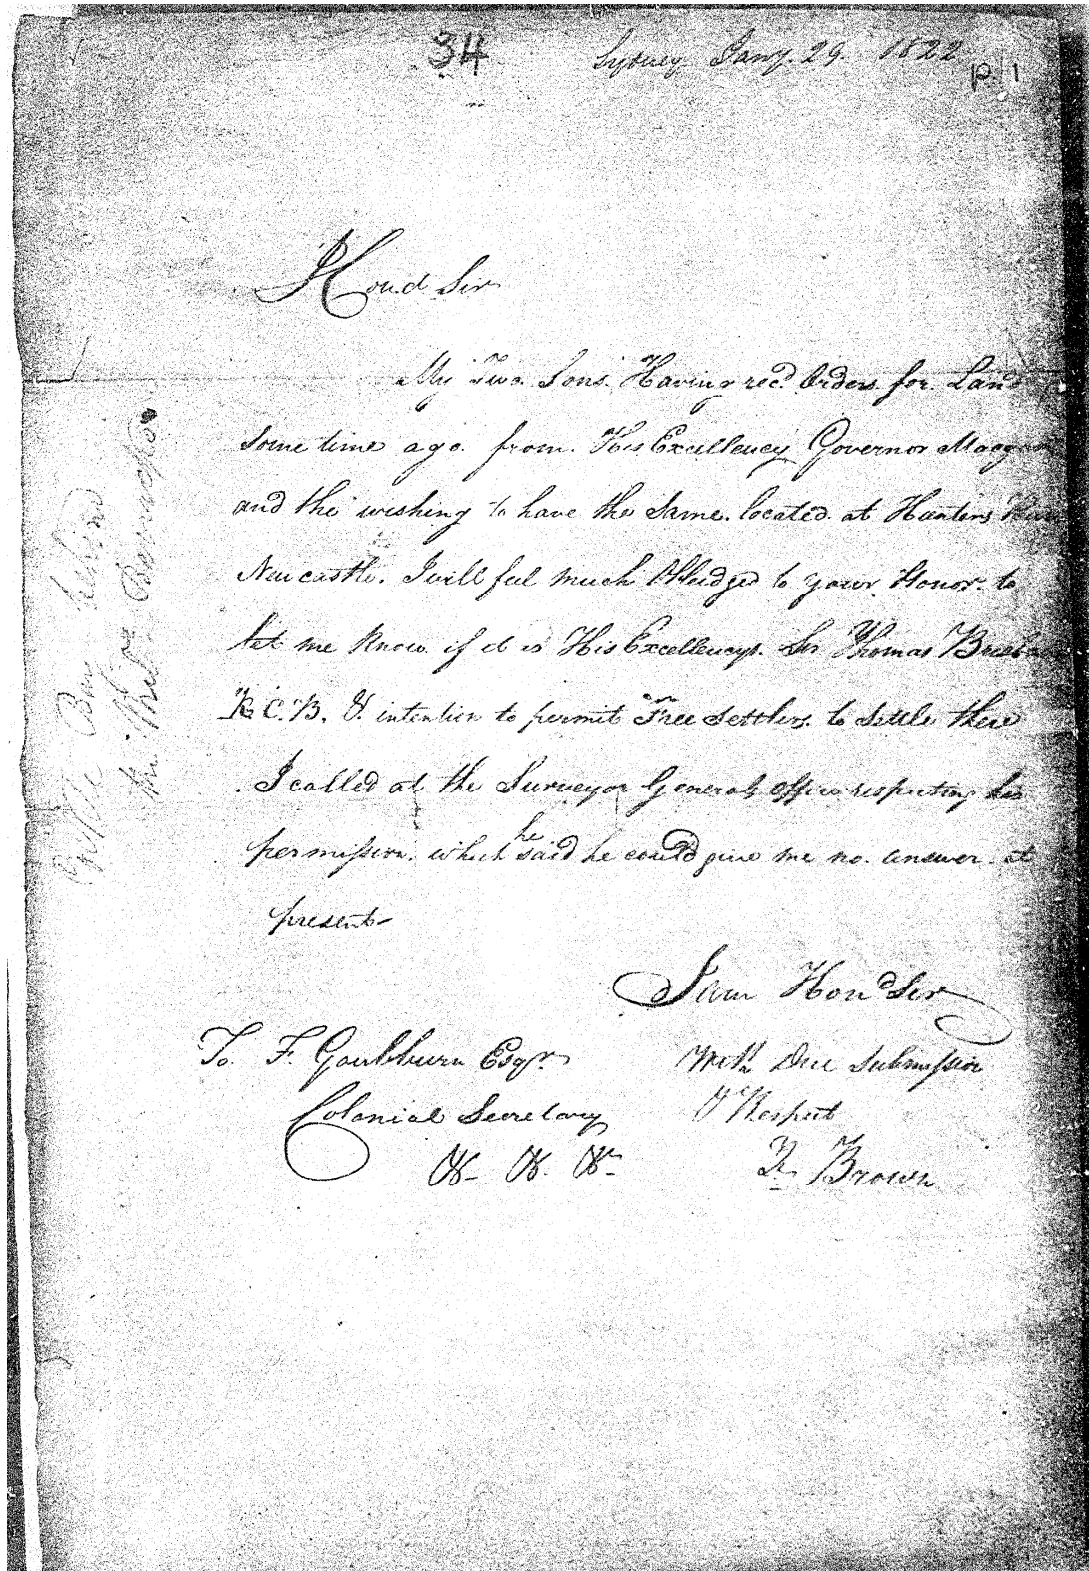 34
Sydney Jany. 29. 1822
p. 1
Hond Sir
My Two Sons. Having recd. Orders for Land
Some time ago. from. His Excellency Governor
and the wishing to have the Same. located. at Hunters
Newcastle. I will feel much Obleidged to your. Honor. to
let me Know. if it is His Excellencys. Sir Thomas
K. C. B. &. intention to permit Free Settlers. to Settle there
I called at the Surveyor Generals Office respecting his
permission. which he said he could give me no. answer. at
present
I am Hond Sir
To. F. Goulburn Esqr.
With Due Submission
Colonial Secretary
& Respect
&c &c &c
Brown